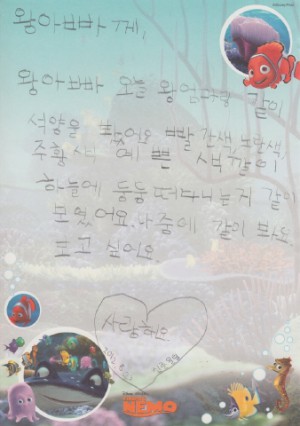 왕아빠 께,
왕아빠 오늘 왕엄마랑 같이
석양을 봤어요 빨간색, 노란색,
주황색 예쁜 색깔이
하늘에 둥둥 떠다니는거 같이
보였어요. 나중에 같이 봐요.
보고 싶어요.
사랑해요
NEMO